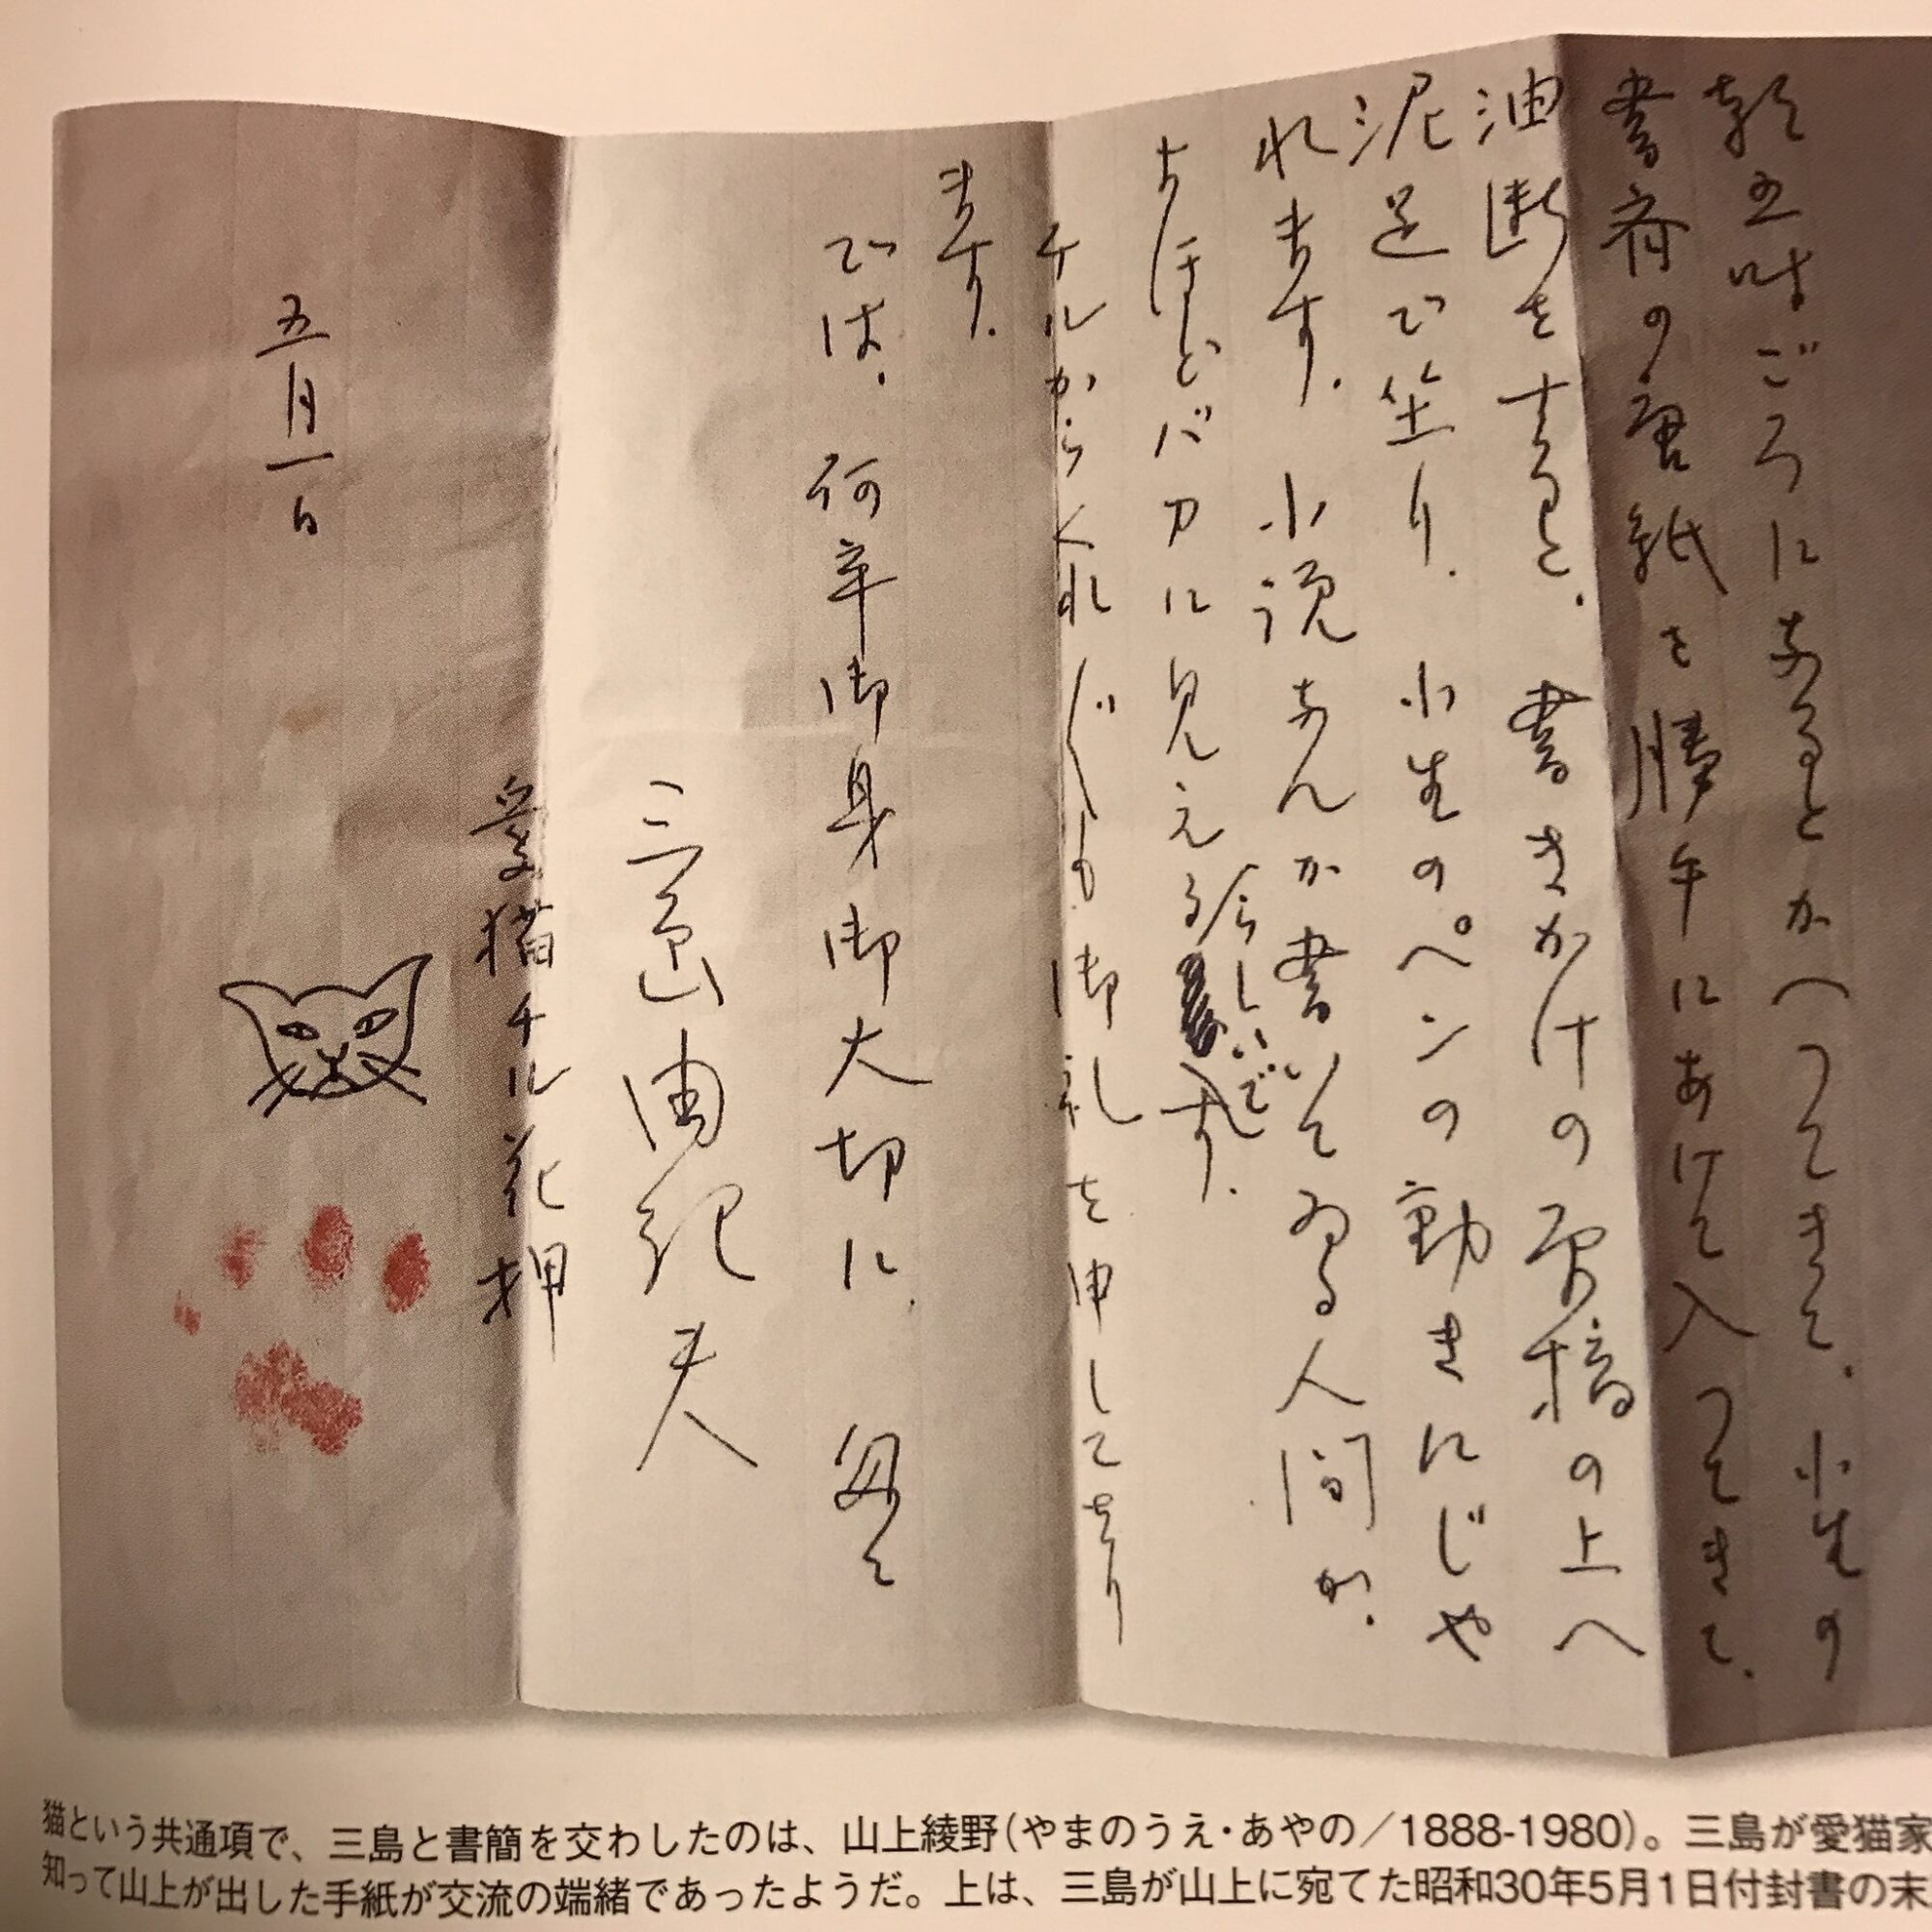 朝五時ごろになるとかへつてきて、小生の
書斎の唐紙を勝手にあけて入つてきて、
油断をすると、書きかけの原稿の上へ
泥足で坐り、小生のペンの動きにじや
れます。小説なんか書いてゐる人間が、
よほどバカに見えるらしいです。
チルからくれぐれも御礼を申してをり
ます。
では、何卒御身御大切に、
三島由紀夫
愛猫チル花押
五月一日
猫という共通項で、三島と書簡を交わしたのは、山上綾野(やまのうえ・あやの／1888-1980)。三島が愛猫家
知って山上が出した手紙が交流の端緒であったようだ。上は、三島が山上に宛てた昭和30年5月1日付封書の末